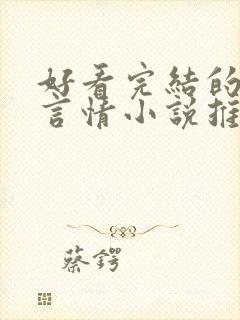 好看完结的
言情小说推
蔡锷